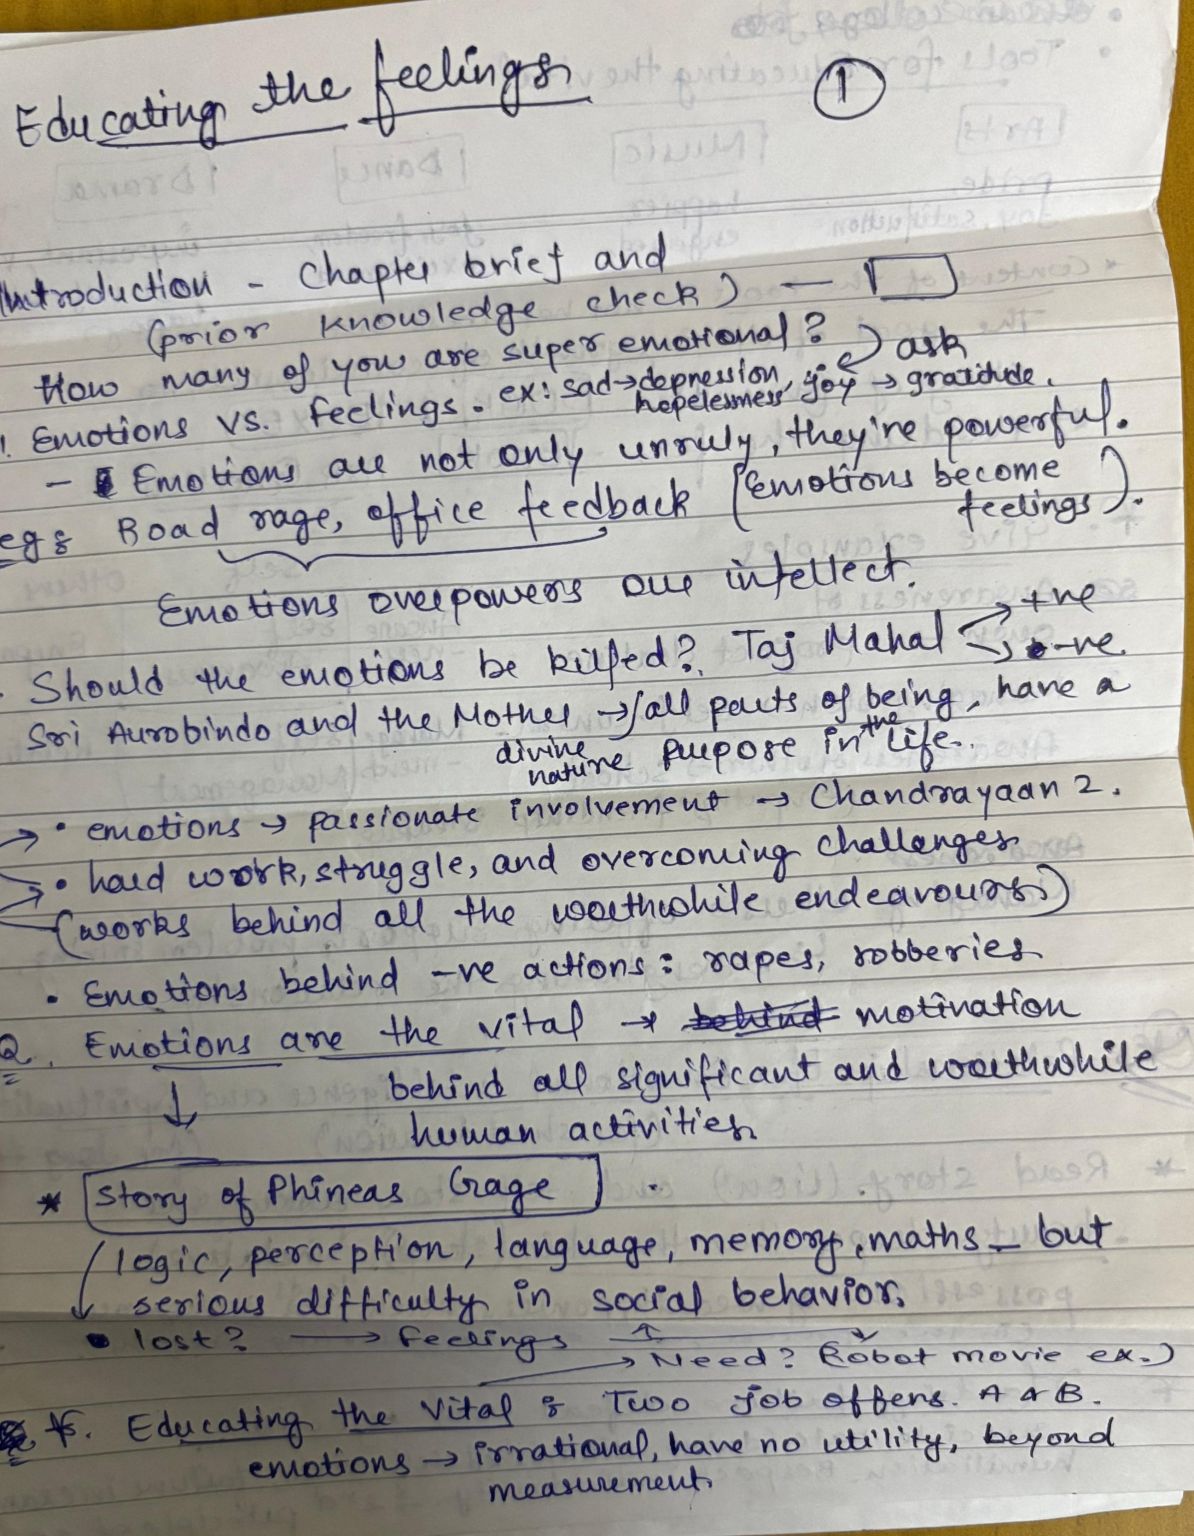 Educating the feelings
1
Introduction - Chapter brief and
(prior knowledge check) —
How many of you are super emotional? ask
! Emotions vs. feelings. ex: sad→depression, hopelessness joy → gratitude.
- Emotions are not only unruly, they're powerful.
egs Road rage, office feedback (emotions become feelings).
Emotions overpowers our intellect.
Should the emotions be killed? Taj Mahal +ve -ve
Sri Aurobindo and the Mother → all parts of being, have a
divine nature purpose in the life.
→ • emotions → passionate involvement → Chandrayaan 2.
→ • hard work, struggle, and overcoming challanges
(works behind all the worthwhile endeavours)
• Emotions behind -ve actions: rapes, robberies
Q. Emotions are the vital → behind motivation
↓ behind all significant and worthwhile
human activities
* Story of Phineas Gage
logic, perception, language, memory, maths - but
serious difficulty in social behavior.
• lost? → feelings
→ Need? Robot movie ex.)
Educating the Vital : Two job offers. A & B.
emotions → irrational, have no utility, beyond
measurement